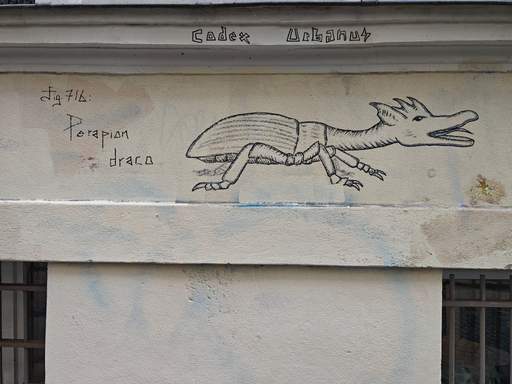 Codex Urbanus
fig 716:
Perapion
draco